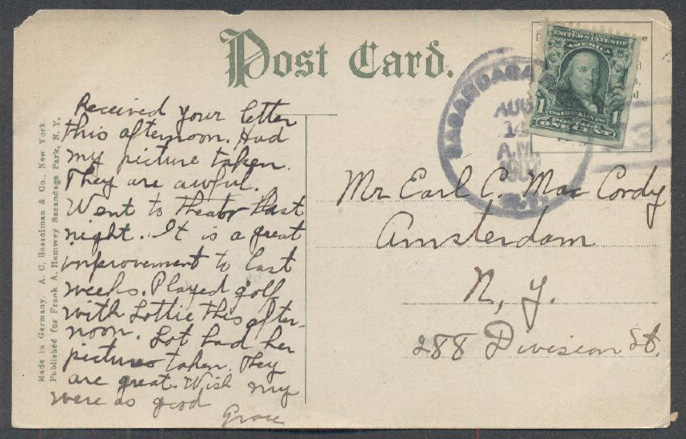 Post Card.
Received your letter
this afternoon. Had
my picture taken.
They are awful.
Went to theator last
night. It is a great
improvement to last
weeks. Played golf
with Lottie this after-
noon. Lot had her
pictures taken. They
are great. Wish my
were as good
Grace
Mr Earl C. Mac Cordy
Amsterdam
N, Y.
288 Division St.
Made in Germany, A. C. Bosselman & Co., New York
Published for Frank A. Hamwey Sacandaga Park, N. Y.
SACANDAGA
AUG
14
A.M.
N.Y.
UNITED STATES OF
AMERICA
1 1
ONE CENT